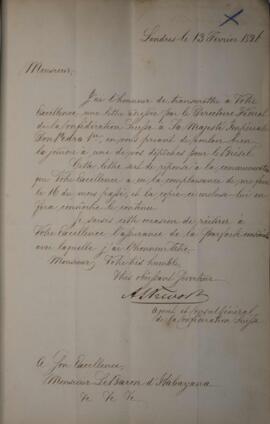 Londres le 13 Février 1826
Monsieur,
J'ai l'honneur de transmettre à Votre
Excellence, une lettre adressée par le Directoire Fédéral
de la Confédération Suisse à Sa Majesté Impériale
Don Pedro 1er, en vous priant de vouloir bien
la joindre à une de vos dépêches pour le Brésil.
Cette lettre sert de réponse à la communication
que Votre Excellence a eu la complaisance de me faire
le 16 du mois passé, et la copie ci incluse lui en
fera connoître le contenu.
Je saisis cette occasion de réitérer à
Votre Excellence l'assurance de la parfaite
avec laquelle j'ai l'honneur d'être,
Monsieur, Votre très humble,
très obéissant Serviteur
Agent et Consul Général
de la Confédération Suisse
A Son Excellence,
Monsieur Le Baron d'Itabayana
&c &c &c